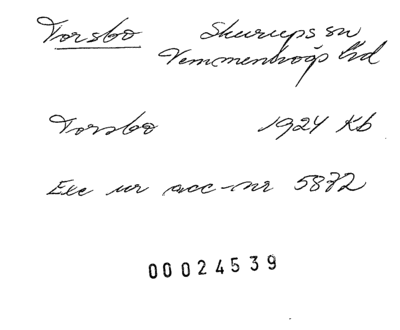 Torsbo Skurups sn
Vemmenhögs hd
Torsbo 1924 Kb
Exc ur acc-nr 5872
00024539